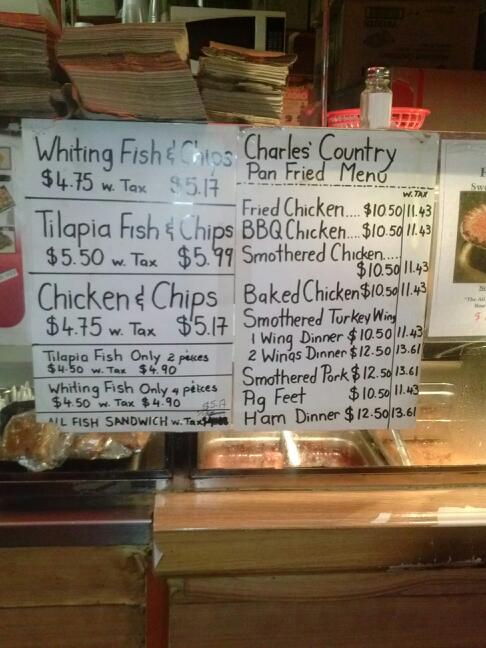 Whiting Fish & Chips
$4.75 w. Tax $5.17
Tilapia Fish & Chips
$5.50 w. Tax $5.99
Chicken & Chips
$4.75 w. Tax $5.17
Tilapia Fish Only 2 peices
$4.50 w. Tax $4.90
Whiting Fish Only 4 peices
$4.50 w. Tax $4.90
$5.17
ALL FISH SANDWICH w. Tax
Charles' Country
Pan Fried Menu
w. TAX
Fried Chicken.... $10.50 11.43
BBQ Chicken.... $10.50 11.43
Smothered Chicken.....
$10.50 11.43
Baked Chicken $10.50 11.43
Smothered Turkey Wing
1 Wing Dinner $10.50 11.43
2 Wings Dinner $12.50 13.61
Smothered Pork $12.50 13.61
Pig Feet $10.50 11.43
Ham Dinner $12.50 13.61